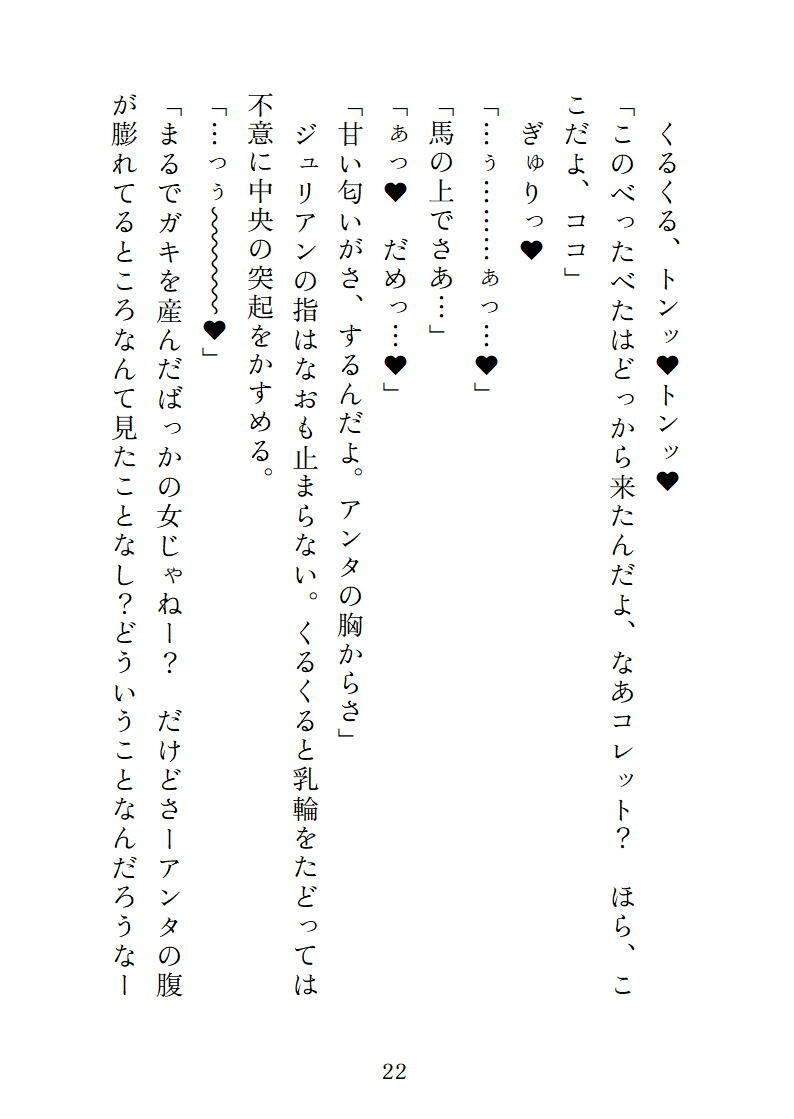 くるくる、トンッ♥トンッ♥
「このべったべたはどっから来たんだよ、なあコレット？　ほら、こ
こだよ、ココ」
ぎゅりっ♥
「…ぅ………ぁっ…♥」
「馬の上でさあ…」
「ぁっ♥　だめっ…♥」
「甘い匂いがさ、するんだよ。アンタの胸からさ」
ジュリアンの指はなおも止まらない。くるくると乳輪をたどっては
不意に中央の突起をかすめる。
「…っぅ～～～～～♥」
「まるでガキを産んだばっかの女じゃねー？　だけどさーアンタの腹
が膨れてるところなんて見たことなし？どういうことなんだろうなー
22